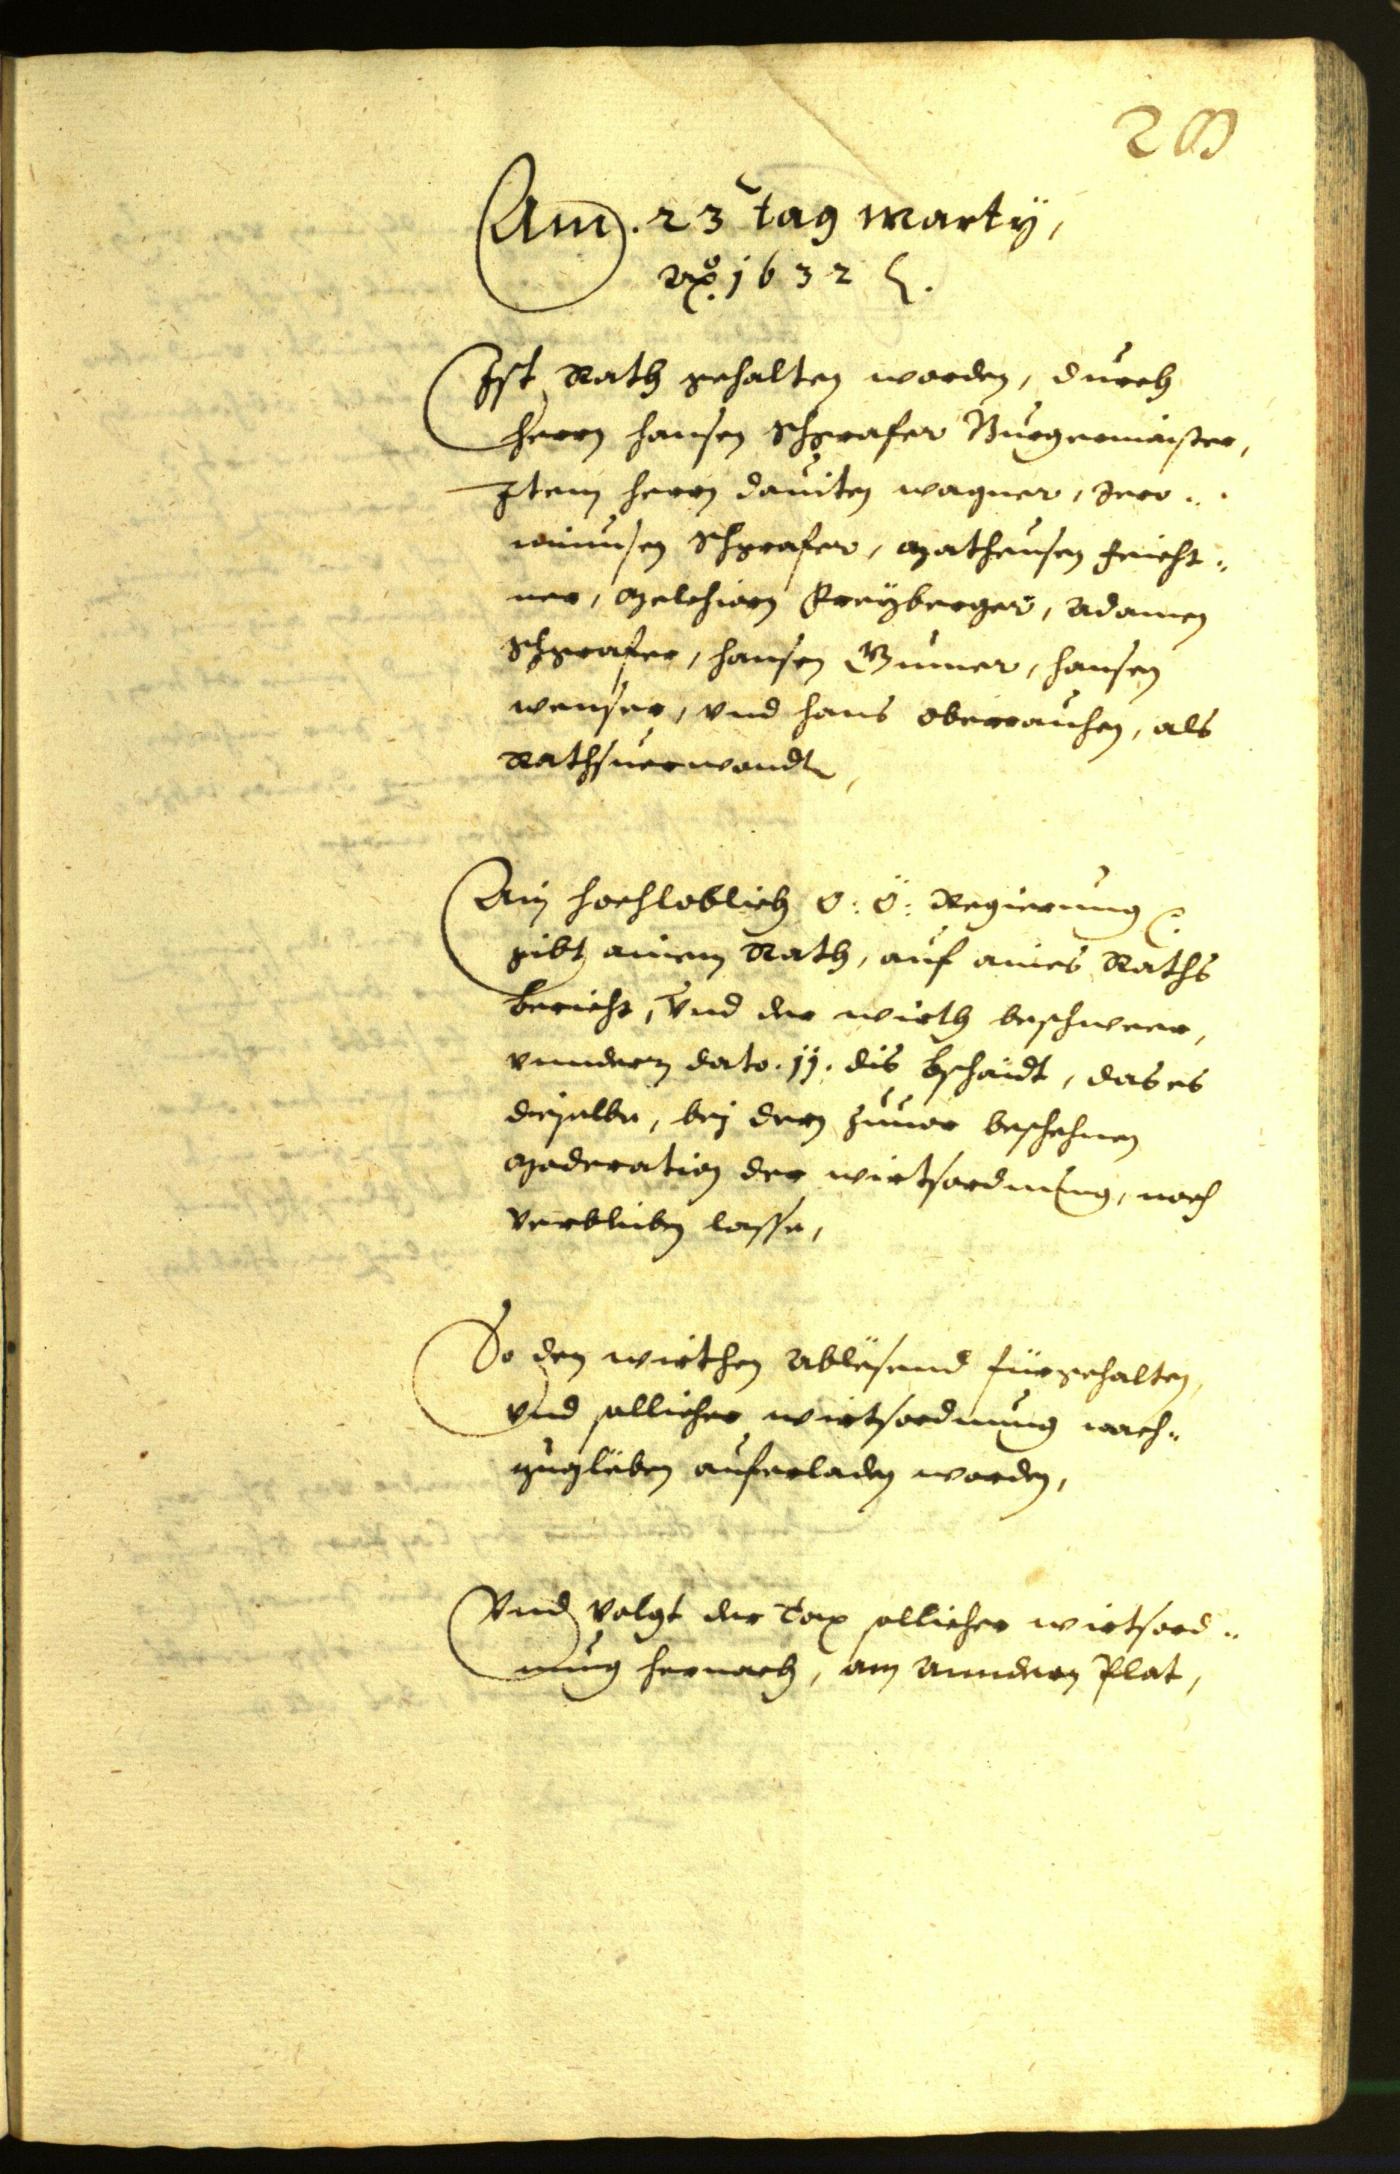 Am .23 tag Marty,
Ao. 1632 .
Ist Rath gehalten worden, durch
herrn Hansen Schgrafer Burgermaister,
Item herrn Daviten Wagner, Jero-
nimusen Schgrafer, Matheusen Feicht-
ner, Melchiorn Kreyberger, Adamen
Schgrafer, Hansen Gumer, Hansen
Wenser, vnd Hans Oberrauhen, als
Rathsverwandt,
Ain hochloblich O: Ö: Regierung
gibt ainem Rath, auf aines Raths
bericht, vnd der wirth beschweer,
vnnderm dato .11. dis bschaidt, das es
dieselbe, bej dern zuuor beschehnen
Moderation der wirtsordnung, noch
verbliben lasse,
So den wirthen ablësend fürgehalten,
vnd sollicher wirtsordnung nach-
zuglëben auferladen worden,
Vnd volgt der Tax sollicher wirtsord-
nung hernach, am Anndern Plat,